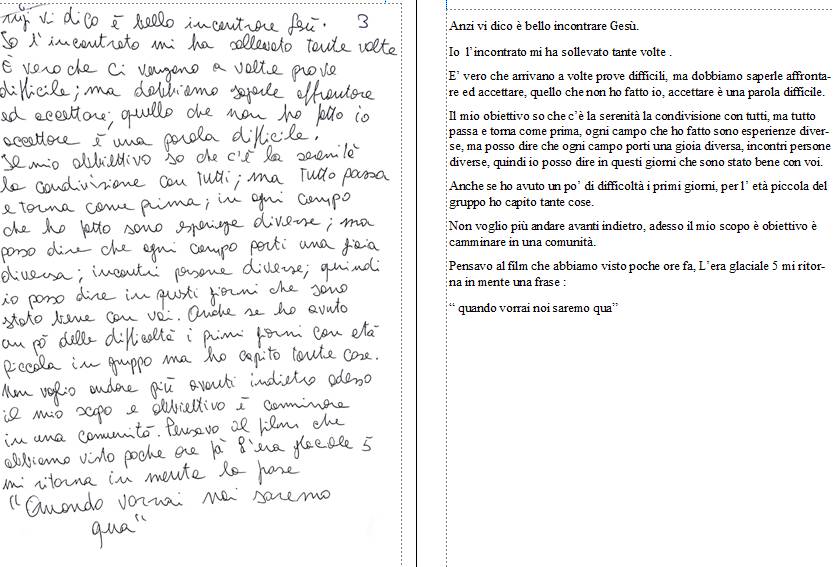 Anzi vi dico è bello incontrare Gesù. 3
Io l'incontrato mi ha sollevato tante volte
È vero che ci vengono a volte prove
difficile; ma dobbiamo saperle affrontare
ed accettare; quello che non ho fatto io
accettare è una parola difficile.
Il mio obbiettivo so che c'è la serenità
la condivisione con tutti; ma tutto passa
e torna come prima; in ogni campo
che ho fatto sono esperienze diverse; ma
posso dire che ogni campo porti una gioia
diversa; incontri persone diverse; quindi
io posso dire in questi giorni che sono
stato bene con voi. Anche se ho avuto
un pò delle difficoltà i primi giorni con età
piccola in gruppo ma ho capito tante cose.
Non voglio andare più avanti indietro adesso
il mio scopo e obbiettivo è camminare
in una comunità. Pensavo al film che
abbiamo visto poche ore fà l'era glaciale 5
mi ritorna in mente la frase
"Quando vorrai noi saremo
qua"
Anzi vi dico è bello incontrare Gesù.
Io l'incontrato mi ha sollevato tante volte .
E' vero che arrivano a volte prove difficili, ma dobbiamo saperle affronta-
re ed accettare, quello che non ho fatto io, accettare è una parola difficile.
Il mio obiettivo so che c'è la serenità la condivisione con tutti, ma tutto
passa e torna come prima, ogni campo che ho fatto sono esperienze diver-
se, ma posso dire che ogni campo porti una gioia diversa, incontri persone
diverse, quindi io posso dire in questi giorni che sono stato bene con voi.
Anche se ho avuto un po' di difficoltà i primi giorni, per l' età piccola del
gruppo ho capito tante cose.
Non voglio più andare avanti indietro, adesso il mio scopo è obiettivo è
camminare in una comunità.
Pensavo al film che abbiamo visto poche ore fa, L'era glaciale 5 mi ritor-
na in mente una frase :
“ quando vorrai noi saremo qua”